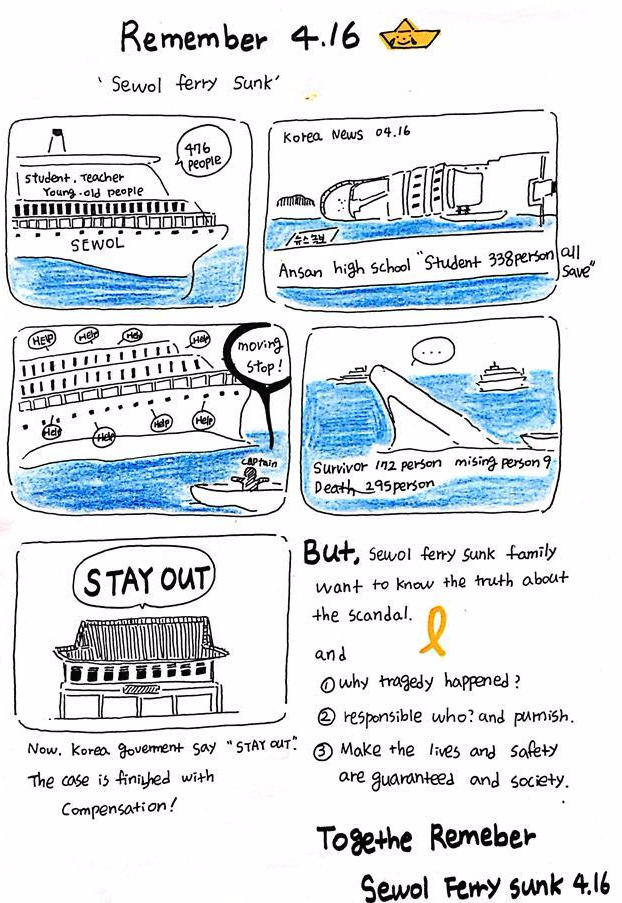 Remember 4.16
'Sewol ferry Sunk'
476
people
Student. Teacher
Young. old people
SEWOL
Korea News 04.16
뉴스속보
Ansan high school "Student 338person all
save"
HELP
Help
Help
Help
moving
stop!
Help
Help
Help
Help
captain
...
Survivor 172 person mising person 9
Death 295person
STAY OUT
Now. Korea goverment say "STAY OUT".
The case is finished with
Compensation!
But, Sewol ferry sunk family
want to know the truth about
the scandal.
and
① why tragedy happened?
② responsible who? and punish.
③ Make the lives and safety
are guaranteed and society.
Togethe Remeber
Sewol Ferry sunk 4.16